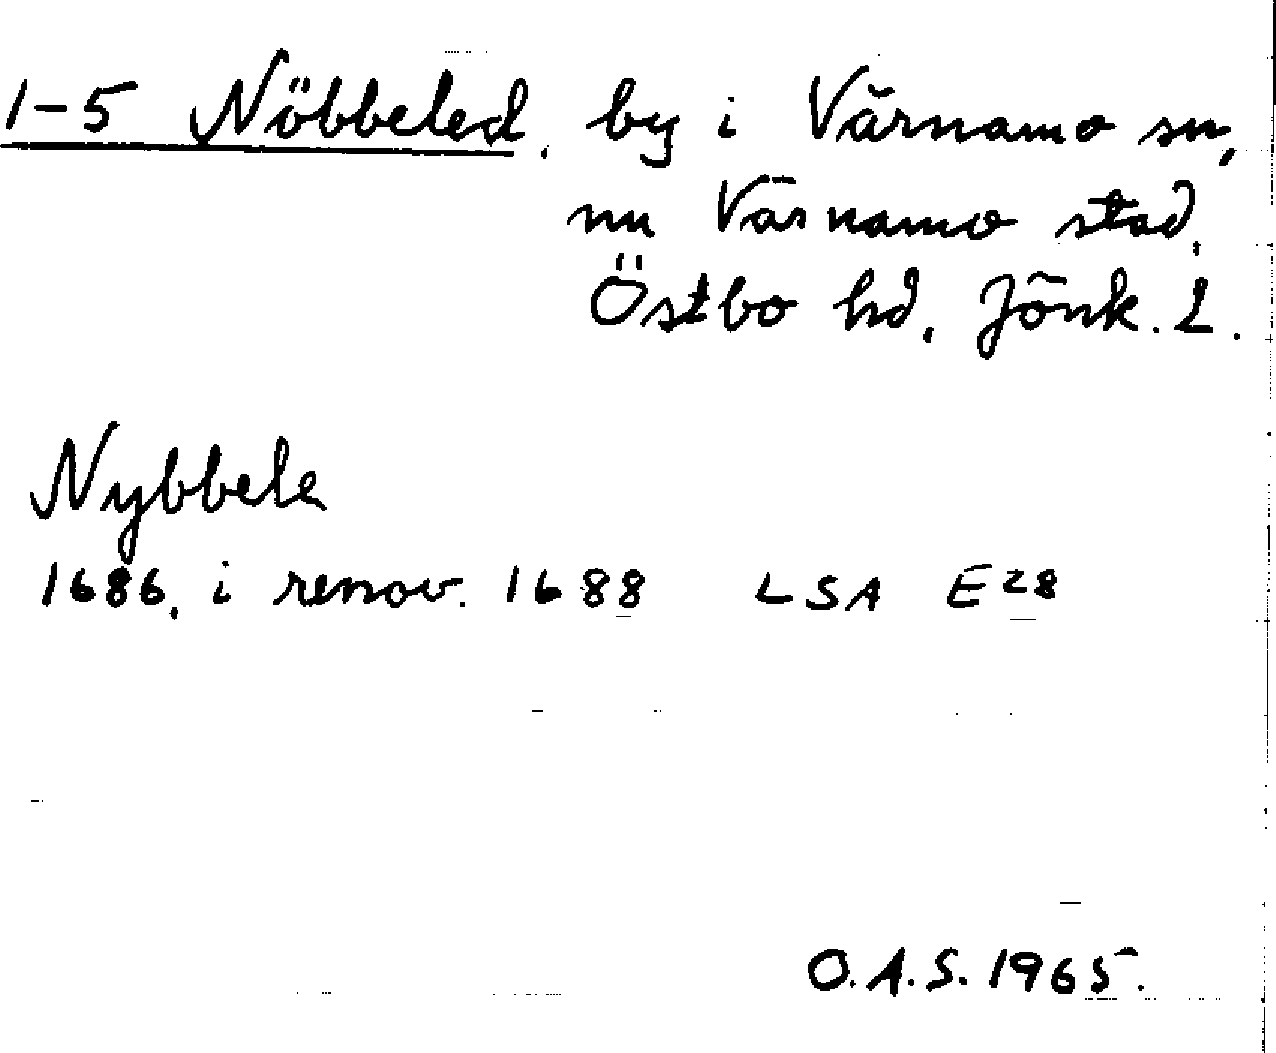 1-5 Nöbbeled, by i Värnamo sn,
nu Värnamo stad,
Östbo hd, Jönk. L.
Nybbele
1686, i renov. 1688 LSA E28
O.A.S. 1965.